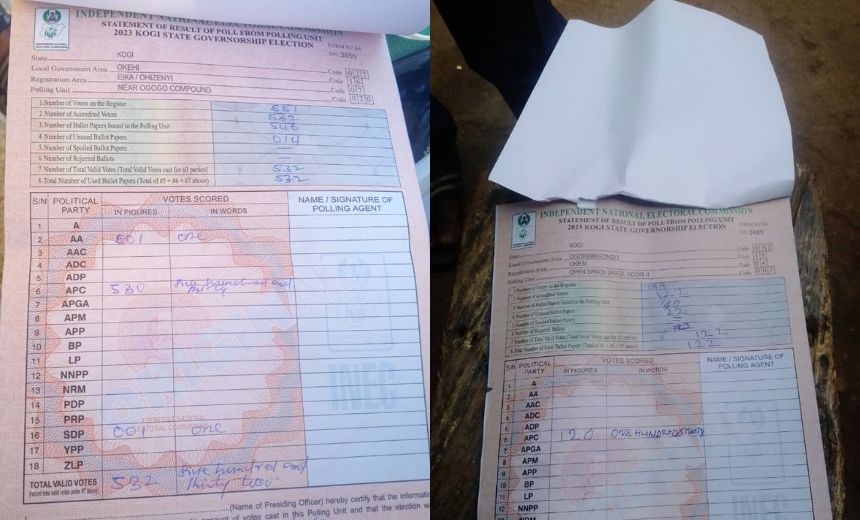 INDEPENDENT NATIONAL ELECTORAL COMMISSION
STATEMENT OF RESULT OF POLL FROM POLLING UNIT
2023 KOGI STATE GOVERNORSHIP ELECTION
FORM EC 8A
S/N: 2055
State KOGI
Local Government Area OKEHI Code 0 2 2
Registration Area EIKA / OHIZENYI Code 1 6
Polling Unit NEAR OGOGO COMPOUND Code 0 7
Code 0 2 0
1.Number of Voters on the Register 551
2.Number of Accredited Voters 532
3.Number of Ballot Papers Issued to the Polling Unit 546
4.Number of Unused Ballot Papers 014
5.Number of Spoiled Ballot Papers —
6.Number of Rejected Ballots —
7.Number of Total Valid Votes (Total Valid Votes cast for all parties) 532
8.Total Number of Used Ballot Papers (Total of #5 + #6 + #7 above) 532
S/N POLITICAL PARTY VOTES SCORED NAME / SIGNATURE OF POLLING AGENT
IN FIGURES IN WORDS
1 A
2 AA 001 one
3 AAC
4 ADC
5 ADP
6 APC 530 five hundred and thirty
7 APGA
8 APM
9 APP
10 BP
11 LP
12 NNPP
13 NRM
14 PDP
15 PRP
16 SDP 001 one
17 YPP
18 ZLP
TOTAL VALID VOTES 532 five hundred and thirty two
INEC
(Name of Presiding Officer) hereby certify that the
account of votes cast in this Polling Unit and that the election
INDEPENDENT NATIONAL ELECTORAL COMMISSION
STATEMENT OF RESULT OF POLL FROM POLLING UNIT
2023 KOGI STATE GOVERNORSHIP ELECTION
FORM EC 8A
State KOGI
Local Government Area OGORI/MAGONGO
Registration Area OKESI
Polling Unit
1.Number of Voters on the Register
2.Number of Accredited Voters
3.Number of Ballot Papers Issued to the Polling Unit
4.Number of Unused Ballot Papers 22
5.Number of Spoiled Ballot Papers
6.Number of Rejected Ballots
7.Number of Total Valid Votes (Total Valid Votes cast for all parties) 122
8.Total Number of Used Ballot Papers (Total of #5 + #6 + #7 above) 122
S/N POLITICAL PARTY VOTES SCORED NAME / SIGNATURE OF POLLING AGENT
IN FIGURES IN WORDS
1 A
2 AA
3 AAC
4 ADC
5 ADP
6 APC 120
7 APGA
8 APM
9 APP
10 BP
11 LP
12 NNPP